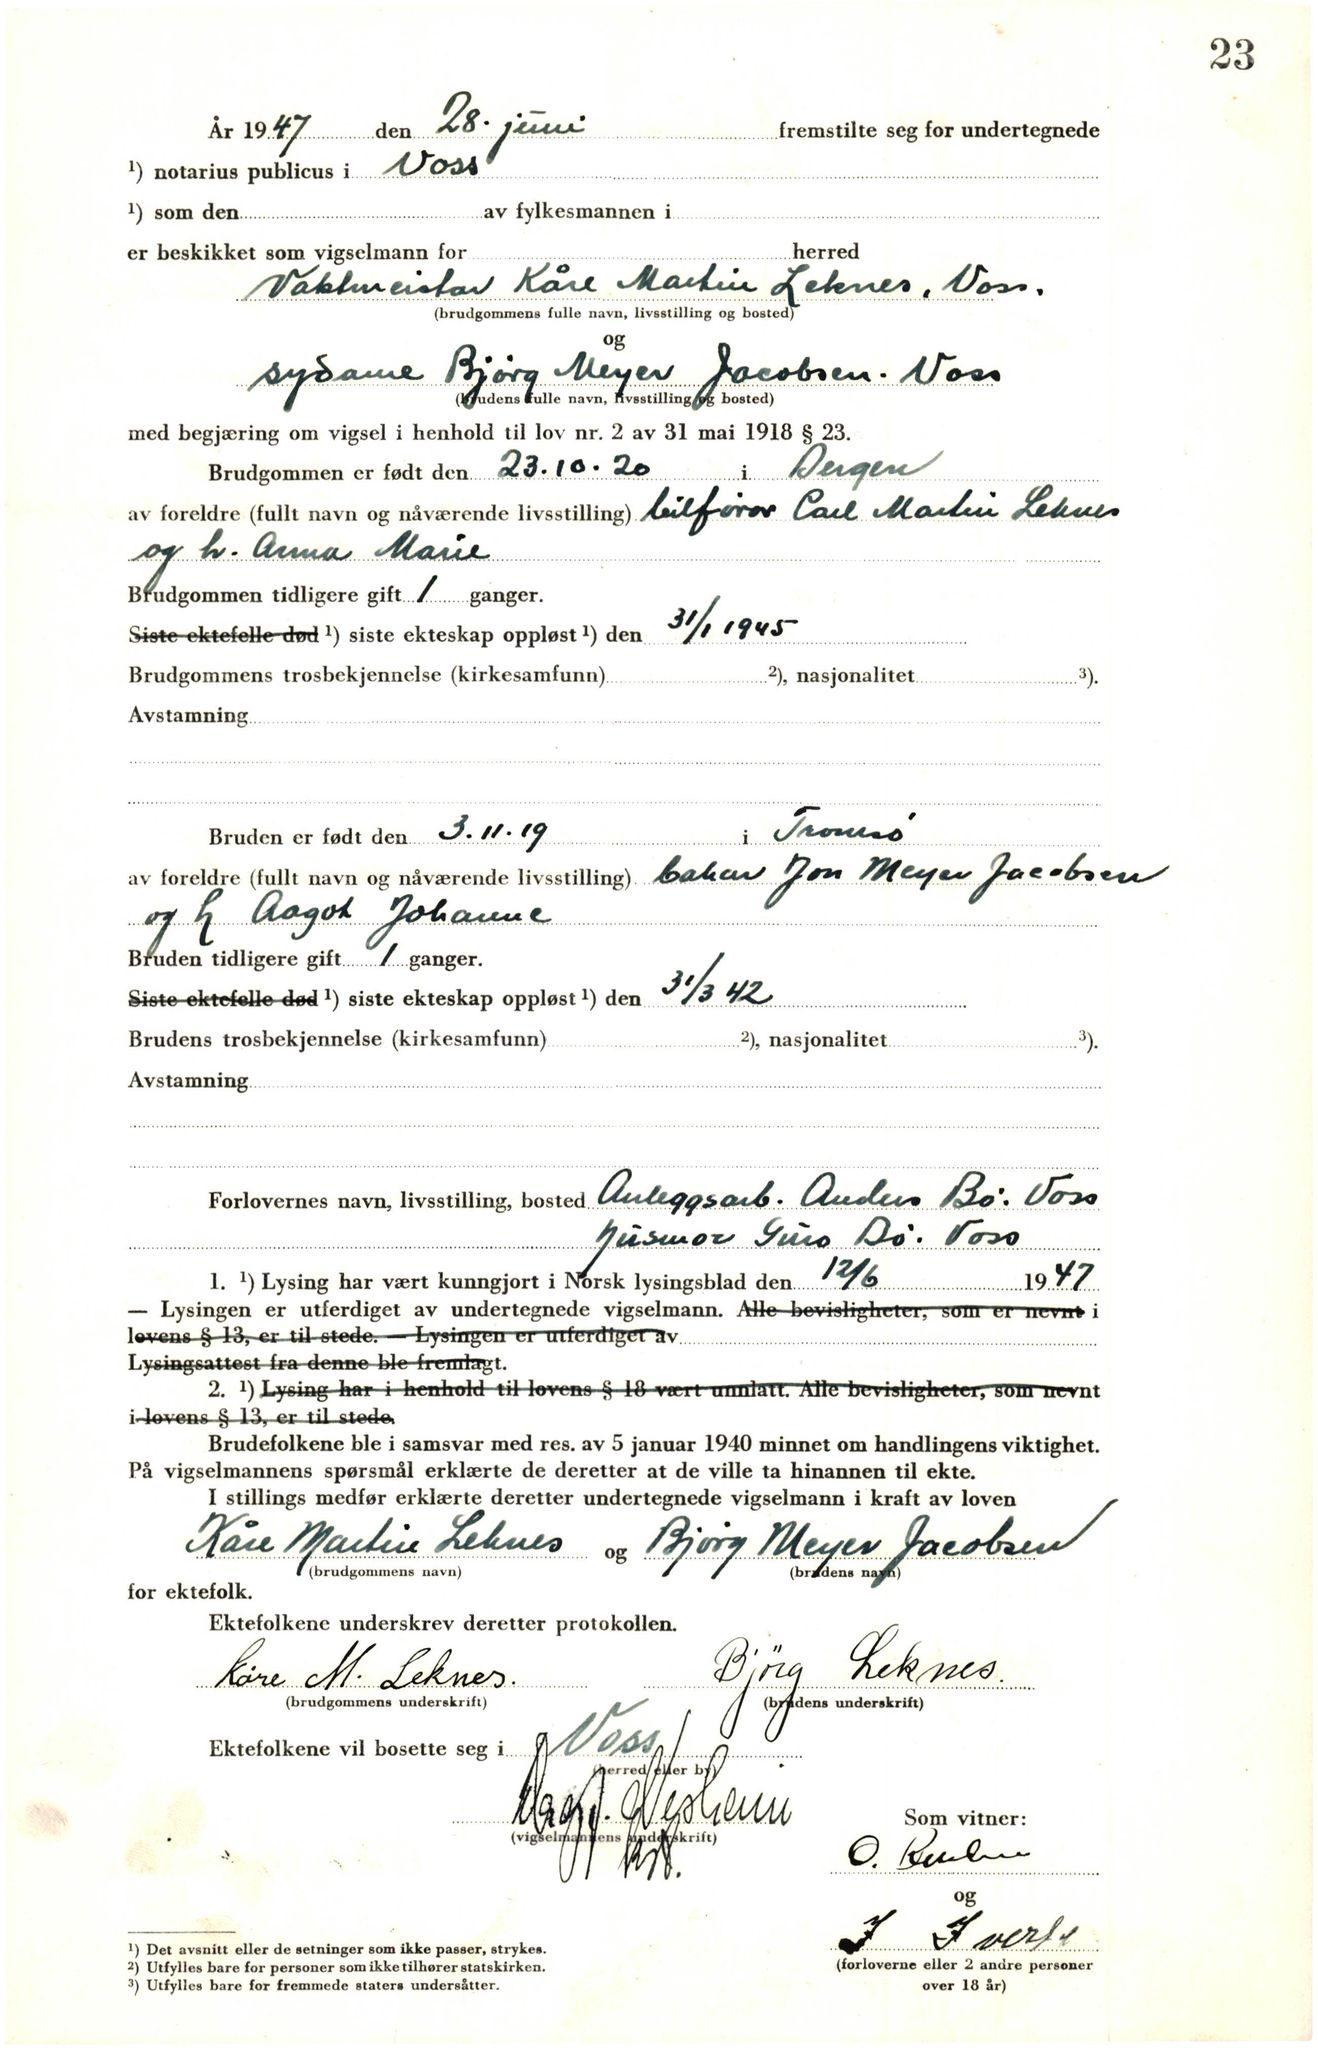 23
År 1947 den 28. juni fremstilte seg for undertegnede
1) notarius publicus i Voss
1) som den av fylkesmannen i
er beskikket som vigselmann for herred
Vaktmeister Kåre Martin Leknes, Voss.
(brudgommens fulle navn, livsstilling og bosted)
og
sydame Bjørg Meyer Jacobsen. Voss
(brudens fulle navn, livsstilling og bosted)
med begjæring om vigsel i henhold til lov nr. 2 av 31 mai 1918 § 23.
Brudgommen er født den 23.10.20 i Bergen
av foreldre (fullt navn og nåværende livsstilling) bilfører Carl Martin Leknes
og h. Anna Marie
Brudgommen tidligere gift 1 ganger.
Siste ektefelle død 1) siste ekteskap oppløst 1) den 31/1 1945
Brudgommens trosbekjennelse (kirkesamfunn) 2), nasjonalitet 3).
Avstamning
Bruden er født den 3.11.19 i Tromsø
av foreldre (fullt navn og nåværende livsstilling) bakar Jon Meyer Jacobsen
og h Aagot Johanne
Bruden tidligere gift 1 ganger.
Siste ektefelle død 1) siste ekteskap oppløst 1) den 31/3 42
Brudens trosbekjennelse (kirkesamfunn) 2), nasjonalitet 3).
Avstamning
Forlovernes navn, livsstilling, bosted Anleggsarb. Anders Bø. Voss
Husmor Guro Bø. Voss
1. 1) Lysing har vært kunngjort i Norsk lysingsblad den 12/6 1947
— Lysingen er utferdiget av undertegnede vigselmann. Alle bevisligheter, som er nevnt i
lovens § 13, er til stede. — Lysingen er utferdiget av
Lysingsattest fra denne ble fremlagt.
2. 1) Lysing har i henhold til lovens § 18 vært unnlatt. Alle bevisligheter, som nevnt
i lovens § 13, er til stede.
Brudefolkene ble i samsvar med res. av 5 januar 1940 minnet om handlingens viktighet.
På vigselmannens spørsmål erklærte de deretter at de ville ta hinannen til ekte.
I stillings medfør erklærte deretter undertegnede vigselmann i kraft av loven
Kåre Martin Leknes og Bjørg Meyer Jacobsen
(brudgommens navn) (brudens navn)
for ektefolk.
Ektefolkene underskrev deretter protokollen.
Kåre M. Leknes. Bjørg Leknes.
(brudgommens underskrift) (brudens underskrift)
Ektefolkene vil bosette seg i Voss
(herred eller by)
Som vitner:
(vigselmannens underskrift)
O.
og
I
1) Det avsnitt eller de setninger som ikke passer, strykes.
2) Utfylles bare for personer som ikke tilhører statskirken.
3) Utfylles bare for fremmede staters undersåtter.
(forloverne eller 2 andre personer
over 18 år)